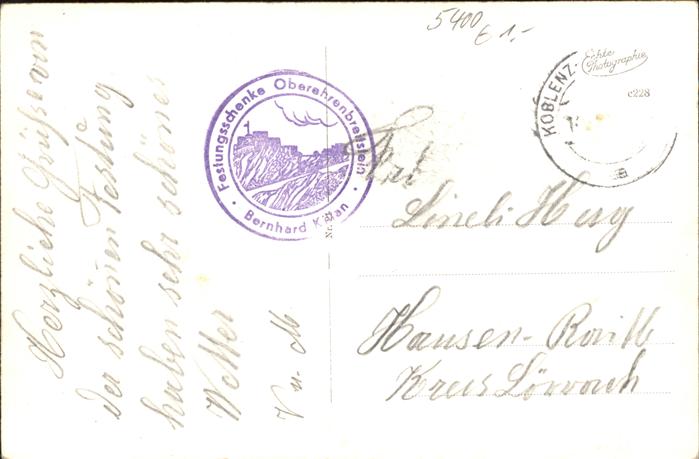 5400
€ 1,-
Echte
Photographie
c228
KOBLENZ
Festungsschenke Oberehrenbreitstein
Bernhard
Herzliche Grüße von
der schönen Festung
haben sehr schönes
Wetter
V u. M
Frl.
Lineli Herg
Hausen-Raitb
Kreis Lörrach